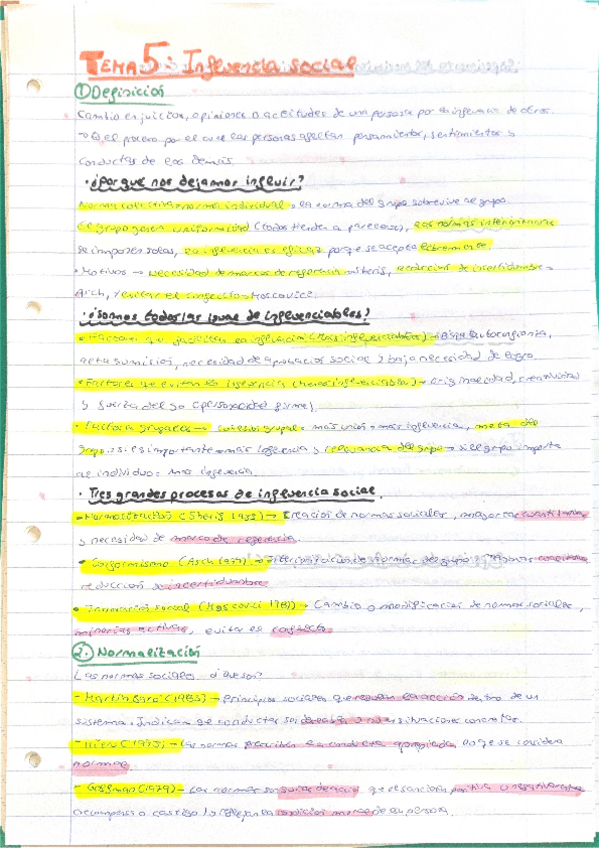 TEMA 5: Influencia social
① Definición
Cambio en juicios, opiniones o actitudes de una persona por la influencia de otros.
Es el proceso por el cual las personas afectan pensamientos, sentimientos y
conductas de los demás.
· ¿Por qué nos dejamos influir?
Norma colectiva norma individual → la norma del grupo sobrevive al grupo.
El grupo genera uniformidad (todos tienden a parecerse), las normas interiorizadas
se imponen solas, la influencia es eficaz porque se acepta libremente.
· Motivos → necesidad de marcos de referencia → Sherif, reducción de incertidumbre →
Asch, y evitar el conflicto → Moscovici.
· ¿Somos todos/as igual de influenciables?
· Factores que facilitan la influencia (más influenciables) → Baja autoconfianza,
alta sumisión, necesidad de aprobación social y baja necesidad de logro.
· Factores que evitan la influencia (menos influenciables) → originalidad, creatividad
y fuerza del yo (personalidad firme).
· Factores grupales → cohesión grupal = más unión = más influencia, meta del
grupo: si es importante = más influencia y relevancia del grupo → si el grupo importa
al individuo = más influencia.
· Tres grandes procesos de influencia social.
· Normalización (Sherif 1935) → Creación de normas sociales, mayor
y necesidad de marco de referencia.
· Conformismo (Asch → interiorización de normas del grupo
reducción de incertidumbre
· Innovación social (Moscovici → Cambio o modificación de normas sociales,
minorías activas, evitar el conflicto.
2. Normalización
Las normas sociales ¿qué son?
- Martín Baró (1985) → Principios sociales que regulan la acción dentro de un
sistema. Indican que conductas son deseables o no en situaciones concretas.
- (1973) → Las normas prescriben la conducta apropiada, lo que se considera
normal.
- Goffman (1979) → Las normas son guías de acción que se sancionan positiva o negativamente
recompensa o castigo) y reflejan la condición moral de la persona.